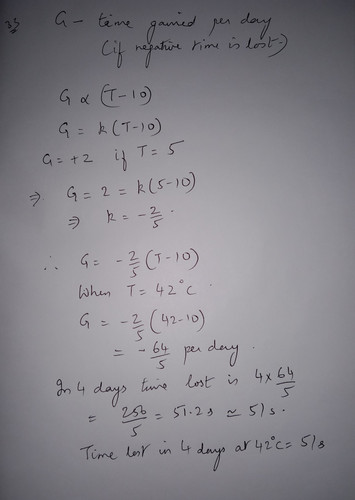 33 G - time gained per day
(if negative time is lost.)
G ∝ (T-10)
G = k(T-10)
G = +2 if T = 5
⇒ G = 2 = k(5-10)
⇒ k = -2/5 .
∴ G = -2/5 (T-10)
When T = 42°C .
G = -2/5 (42-10)
= -64/5 per day .
In 4 days time lost is 4 x 64/5
= 256/5 = 51.2s ≃ 51s .
Time lost in 4 days at 42°C = 51s